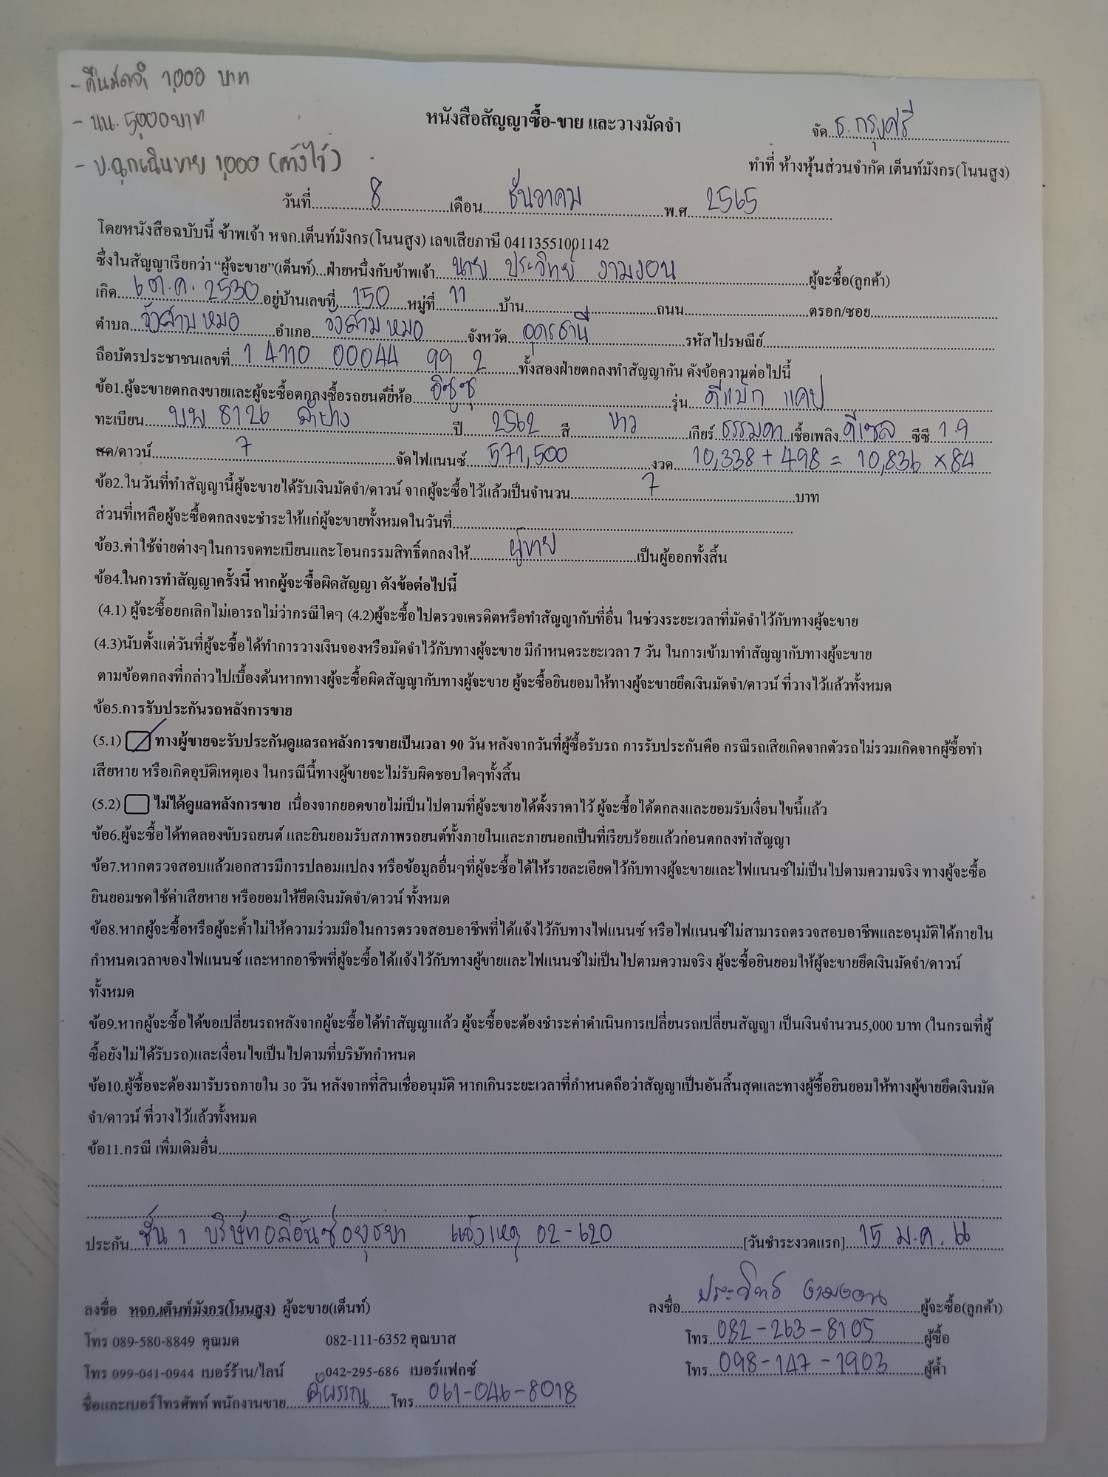 - คืนมัดจำ 1,000 บาท
- นน. 5,000 บาท
- ป.ฉุกเฉินขาย 1,000 (ค้างไว้)
หนังสือสัญญาซื้อ-ขาย และวางมัดจำ
จัด ธ.กรุงศรี
ทำที่ ห้างหุ้นส่วนจำกัด เต็นท์มังกร(โนนสูง)
วันที่ 8 เดือน ธันวาคม พ.ศ 2565
โดยหนังสือฉบับนี้ ข้าพเจ้า หจก.เต็นท์มังกร(โนนสูง) เลขเสียภาษี 04113551001142
ซึ่งในสัญญาเรียกว่า "ผู้จะขาย"(เต็นท์)...ฝ่ายหนึ่งกับข้าพเจ้า นาย ประวิทย์ งามงอน ผู้จะซื้อ(ลูกค้า)
เกิด 6 ต.ค. 2530 อยู่บ้านเลขที่ 150 หมู่ที่ 11 บ้าน ถนน ตรอก/ซอย
ตำบล วังสามหมอ อำเภอ วังสามหมอ จังหวัด อุดรธานี รหัสไปรษณีย์
ถือบัตรประชาชนเลขที่ 1 4110 00044 99 2 ทั้งสองฝ่ายตกลงทำสัญญากัน ดังข้อความต่อไปนี้
ข้อ1.ผู้จะขายตกลงขายและผู้จะซื้อตกลงซื้อรถยนต์ยี่ห้อ อีซูซุ รุ่น ดีแม็ก แคป
ทะเบียน บพ 8126 ลำปาง ปี 2562 สี ขาว เกียร์ ธรรมดา เชื้อเพลิง ดีเซล ซีซี 1.9
สด/ดาวน์ 7 จัดไฟแนนซ์ 571,500 งวด 10,338 + 498 = 10,836 x 84
ข้อ2.ในวันที่ทำสัญญานี้ผู้จะขายได้รับเงินมัดจำ/ดาวน์ จากผู้จะซื้อไว้แล้วเป็นจำนวน 7 บาท
ส่วนที่เหลือผู้จะซื้อตกลงจะชำระให้แก่ผู้จะขายทั้งหมดในวันที่
ข้อ3.ค่าใช้จ่ายต่างๆในการจดทะเบียนและโอนกรรมสิทธิ์ตกลงให้ ผู้ขาย เป็นผู้ออกทั้งสิ้น
ข้อ4.ในการทำสัญญาครั้งนี้ หากผู้จะซื้อผิดสัญญา ดังข้อต่อไปนี้
(4.1) ผู้จะซื้อยกเลิกไม่เอารถไม่ว่ากรณีใดๆ (4.2)ผู้จะซื้อไปตรวจเครดิตหรือทำสัญญากับที่อื่น ในช่วงระยะเวลาที่มัดจำไว้กับทางผู้จะขาย
(4.3)นับตั้งแต่วันที่ผู้จะซื้อได้ทำการวางเงินจองหรือมัดจำไว้กับทางผู้จะขาย มีกำหนดระยะเวลา 7 วัน ในการเข้ามาทำสัญญากับทางผู้จะขาย
ตามข้อตกลงที่กล่าวไปเบื้องต้นหากทางผู้จะซื้อผิดสัญญากับทางผู้จะขาย ผู้จะซื้อยินยอมให้ทางผู้จะขายยึดเงินมัดจำ/ดาวน์ ที่วางไว้แล้วทั้งหมด
ข้อ5.การรับประกันรถหลังการขาย
(5.1) ทางผู้ขายจะรับประกันดูแลรถหลังการขายเป็นเวลา 90 วัน หลังจากวันที่ผู้ซื้อรับรถ การรับประกันคือ กรณีรถเสียเกิดจากตัวรถไม่รวมเกิดจากผู้ซื้อทำ
เสียหาย หรือเกิดอุบัติเหตุเอง ในกรณีนี้ทางผู้ขายจะไม่รับผิดชอบใดๆทั้งสิ้น
(5.2) ไม่ได้ดูแลหลังการขาย เนื่องจากยอดขายไม่เป็นไปตามที่ผู้จะขายได้ตั้งราคาไว้ ผู้จะซื้อได้ตกลงและยอมรับเงื่อนไขนี้แล้ว
ข้อ6.ผู้จะซื้อได้ทดลองขับรถยนต์ และยินยอมรับสภาพรถยนต์ทั้งภายในและภายนอกเป็นที่เรียบร้อยแล้วก่อนตกลงทำสัญญา
ข้อ7.หากตรวจสอบแล้วเอกสารมีการปลอมแปลง หรือข้อมูลอื่นๆที่ผู้จะซื้อได้ให้รายละเอียดไว้กับทางผู้จะขายและไฟแนนซ์ไม่เป็นไปตามความจริง ทางผู้จะซื้อ
ยินยอมชดใช้ค่าเสียหาย หรือยอมให้ยึดเงินมัดจำ/ดาวน์ ทั้งหมด
ข้อ8.หากผู้จะซื้อหรือผู้จะค้ำไม่ให้ความร่วมมือในการตรวจสอบอาชีพที่ได้แจ้งไว้กับทางไฟแนนซ์ หรือไฟแนนซ์ไม่สามารถตรวจสอบอาชีพและอนุมัติได้ภายใน
กำหนดเวลาของไฟแนนซ์ และหากอาชีพที่ผู้จะซื้อได้แจ้งไว้กับทางผู้ขายและไฟแนนซ์ไม่เป็นไปตามความจริง ผู้จะซื้อยินยอมให้ผู้จะขายยึดเงินมัดจำ/ดาวน์
ทั้งหมด
ข้อ9.หากผู้จะซื้อได้ขอเปลี่ยนรถหลังจากผู้จะซื้อได้ทำสัญญาแล้ว ผู้จะซื้อจะต้องชำระค่าดำเนินการเปลี่ยนรถเปลี่ยนสัญญา เป็นเงินจำนวน5,000 บาท (ในกรณที่ผู้
ซื้อยังไม่ได้รับรถ)และเงื่อนไขเป็นไปตามที่บริษัทกำหนด
ข้อ10.ผู้ซื้อจะต้องมารับรถภายใน 30 วัน หลังจากที่สินเชื่ออนุมัติ หากเกินระยะเวลาที่กำหนดถือว่าสัญญาเป็นอันสิ้นสุดและทางผู้ซื้อยินยอมให้ทางผู้ขายยึดเงินมัด
จำ/ดาวน์ ที่วางไว้แล้วทั้งหมด
ข้อ11.กรณี เพิ่มเติมอื่น
ประกัน ชั้น 1 บริษัทอลิอันซ์อยุธยา แจ้งเหตุ 02-620 [วันชำระงวดแรก] 15 ม.ค. 66
ลงชื่อ หจก.เต็นท์มังกร(โนนสูง) ผู้จะขาย(เต็นท์) ลงชื่อ ประวิทย์ งามงอน ผู้จะซื้อ(ลูกค้า)
โทร 089-580-8849 คุณมด 082-111-6352 คุณบาส โทร 082-263-8105 ผู้ซื้อ
โทร 099-041-0944 เบอร์ร้าน/ไลน์ 042-295-686 เบอร์แฟกซ์ โทร 098-147-1903 ผู้ค้ำ
ชื่อและเบอร์โทรศัพท์ พนักงานขาย โทร 061-046-8018